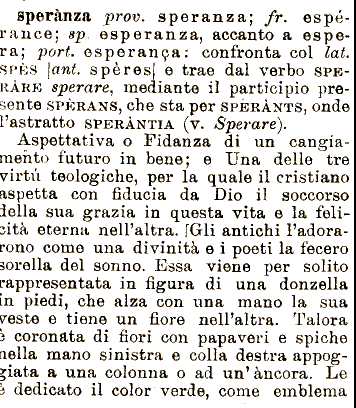 sperànza prov. speranza; fr. espé-
rance; sp. esperanza, accanto a espe-
ra; port. esperança: confronta col lat.
SPÈS [ant. spères] e trae dal verbo SPE-
RÀRE sperare, mediante il participio pre-
sente SPÈRANS, che sta per SPÈRÀNTS, onde
l'astratto SPERÀNTIA (v. Sperare).
Aspettativa o Fidanza di un cangia-
mento futuro in bene; e Una delle tre
virtú teologiche, per la quale il cristiano
aspetta con fiducia da Dio il soccorso
della sua grazia in questa vita e la feli-
cità eterna nell'altra. [Gli antichi l'adora-
rono come una divinità e i poeti la fecero
sorella del sonno. Essa viene per solito
rappresentata in figura di una donzella
in piedi, che alza con una mano la sua
veste e tiene un fiore nell'altra. Talora
è coronata di fiori con papaveri e spiche
nella mano sinistra e colla destra appog-
giata a una colonna o ad un'àncora. Le
è dedicato il color verde, come emblema